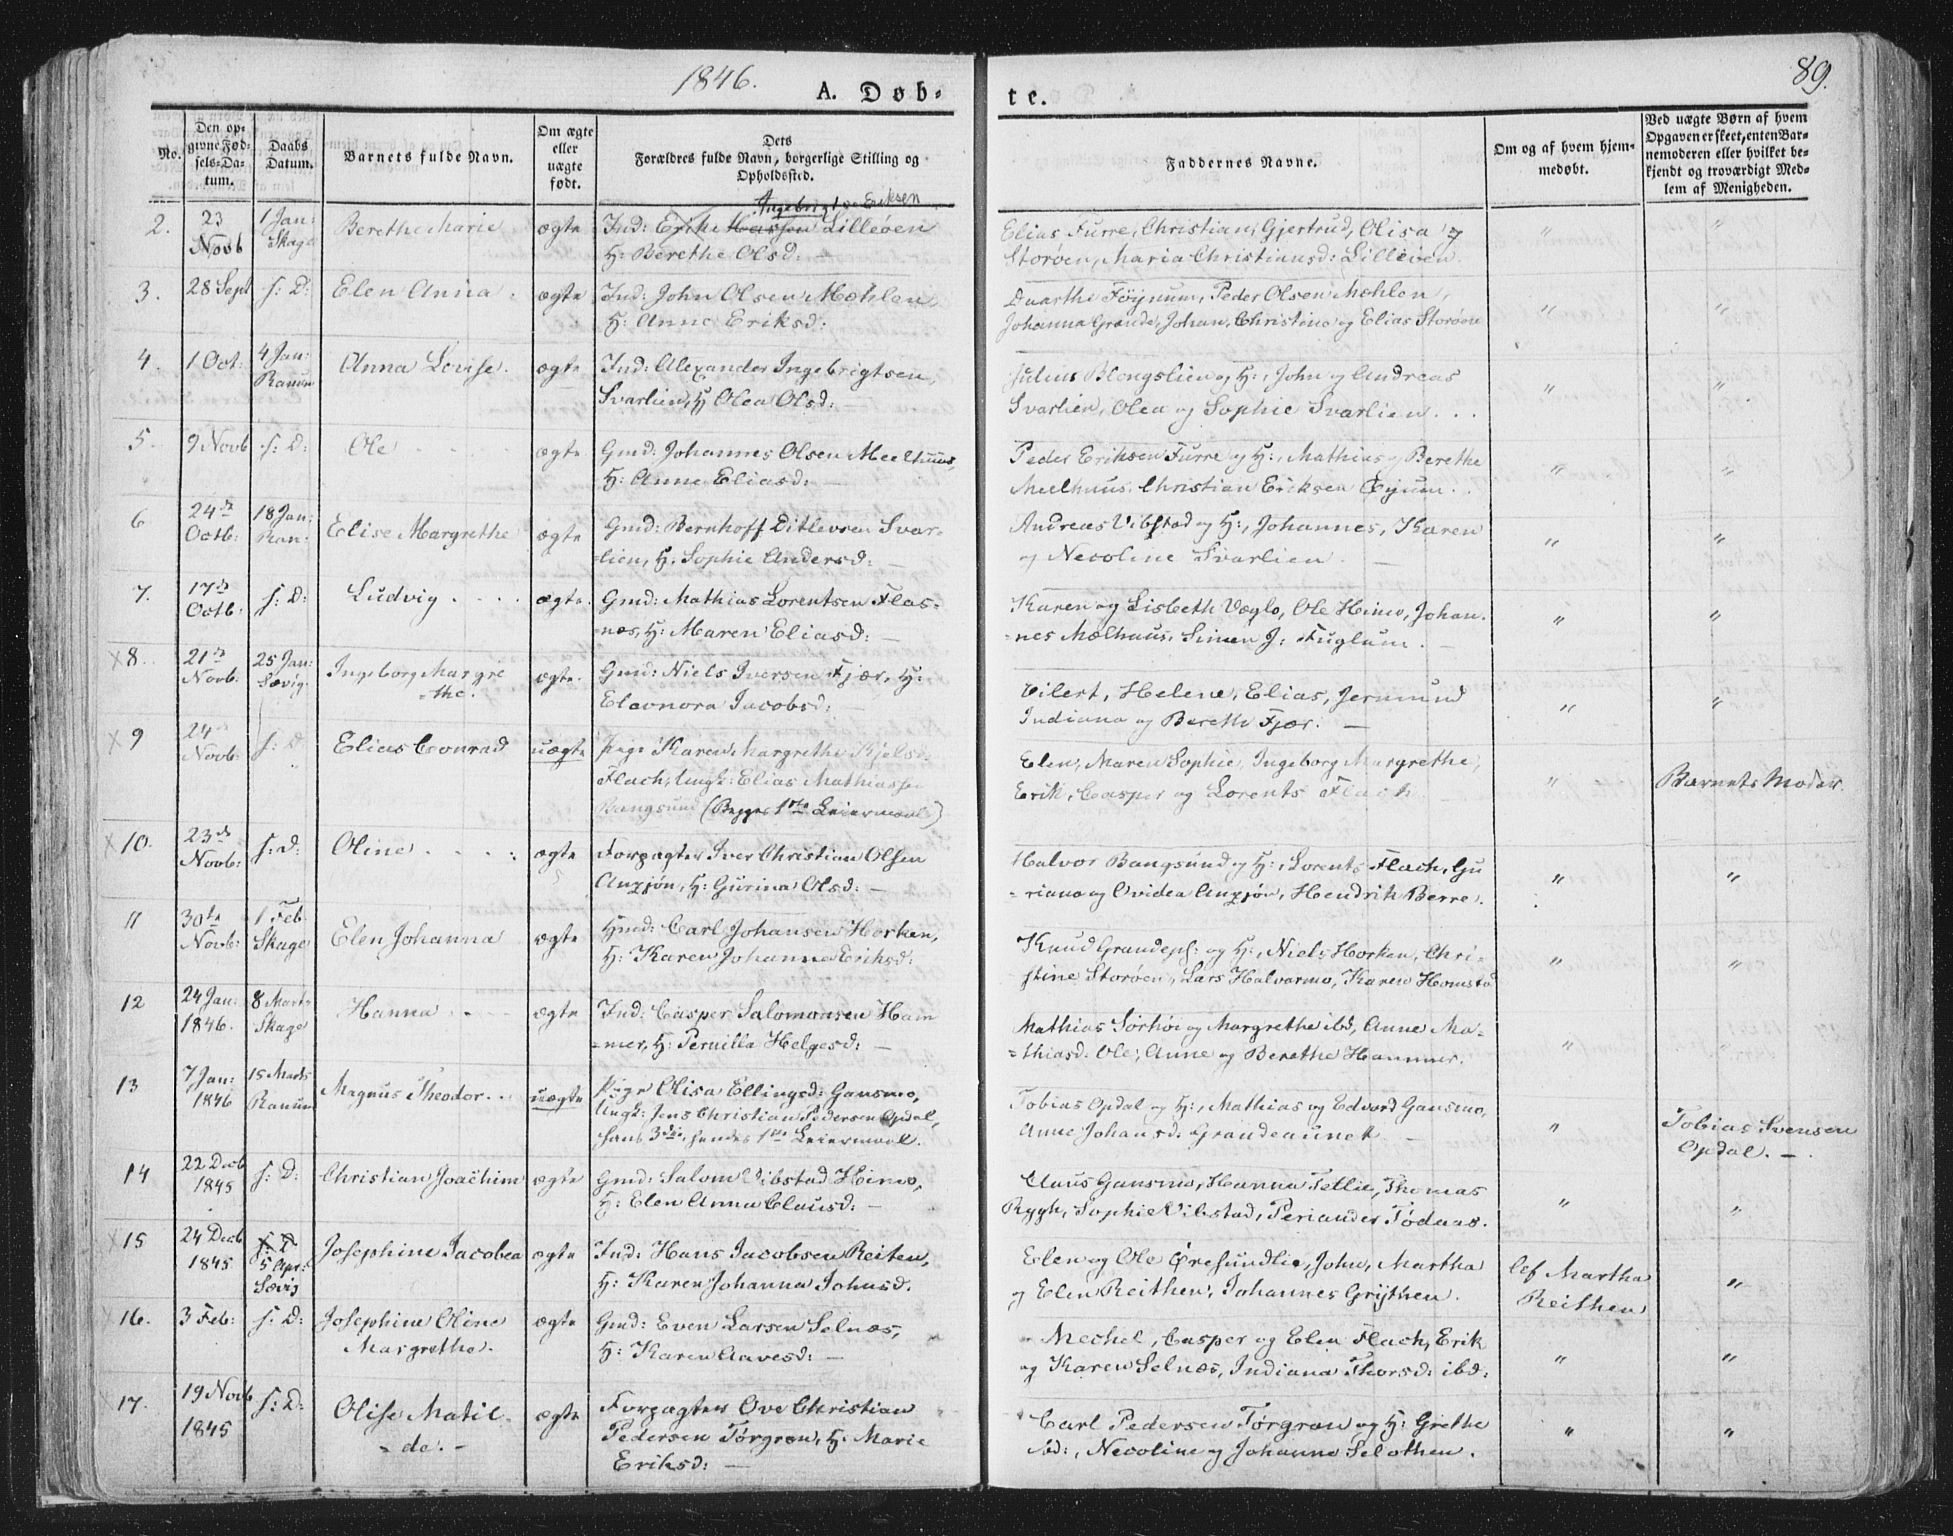 1846.
A. Døb-
te.
89.
No.
Den op-
givne Fød-
sels-Da-
tum.
Daabs
Datum.
Barnets fulde Navn.
Om ægte
eller
uægte
født.
Dets
Forældres fulde Navn, borgerlige Stilling og
Opholdssted.
Faddernes Navne.
Om og af hvem hjem-
medøbt.
Ved uægte Børn af hvem
Opgaven er skeet, enten Bar-
nemoderen eller hvilket be-
kjendt og troværdigt Med-
lem af Menigheden.
2.
23
Novb
1 Jan:
Skage
Berethe Marie
ægte
Ingebrigt Eriksen
Ind: Lilleøen
H: Berethe Olsd:
Elias Furre, Christian, Gjertrud, Olisa og
Storøen, Maria Christiansd: Lilleøen.
3.
28 Sept
s: D:
Elen Anna
ægte
Ind: John Olsen Mæhlen,
H: Anne Eriksd:
Duarthe Føynum, Peder Olsen Mæhlen,
Johanna Grande, Johan, Christine og Elias Storøen
4.
1 Oct:
4 Jan:
Ranum
Anna Lovise.
ægte
Ind: Alexander Ingebrigtsen,
Svarlien, H Olea Olsd:
Julius Blengslien og H:, John og Andreas
Svarlien, Olea og Sophie Svarlien...
5.
9 Novb
s: D:
Ole
ægte
Gmd: Johannes Olsen Meelhuus,
H: Anne Eliasd:
Peder Eriksen Furre og H:, Mathias og Berethe
Meelhuus, Christian Eriksen Øyum.
6
24de
Octb:
18 Jan:
Ran:
Elise Margrethe
ægte
Gmd: Bernhoff Ditlevsen Svar-
-lien, H. Sophie Andersd:
Andreas Vibstad og H:, Johannes, Karen
og Necoline Svarlien.
7.
17de
Octb:
s: D:
Ludvig
ægte.
Gmd: Mathias Lorentsen Flas-
=næs, H: Maren Eliasd:
Karen og Lisbeth Veglo, Ole Heimo, Johan-
=nes Mælhuus, Simen J: Fuglum.
x 8.
21de
Novb:
25 Jan:
Sævig
Ingeborg Margre
-the.
ægte.
Gmd: Niels Iversen Fjær, H:
Eleonora Jacobsd:
Eilert, Helene, Elias, Jermund
Indiana og Berethe Fjær.
x 9
24de
Novb:
s: D
Elias Conrad
uægte
Pige Karen Margrethe Kjelsd:
Flach, Ungk: Elias Mathiassen
Bangsund (Begges 1ste Leiermaal)
Elen, Maren Sophie, Ingeborg Margrethe,
Erik, Casper og Lorents Flach
Barnets Moder.
x 10.
23de
Novb:
s: D:
Oline
ægte
Forpagter Iver Christian Olsen
Anzjøn, H: Gurina Olsd:
Halvor Bangsund og H:, Lorents Flach, Gu
=riana og Ovidea Anzjøn, Hendrik Berre.
11
30te
Novb:
1 Feb
Skage
Elen Johanna
ægte
Hmd: Carl Johansen Horken,
H: Karen Johanna Eriksd:
Knud Grandepl: og H:, Niels Horken, Chri-
stine Storøen, Lars Halvarmo, Karen Homstad
12
24 Jan:
1846.
8 Marts
Skage
Hanna
ægte
Ind: Casper Salomonsen Ham
=mer, H: Pernilla Helgesd:
Mathias Sørhøi og Margrethe ibd, Anne Ma-
=thiasd: Ole, Anne og Berethe Hammer.
13
7 Jan:
1846
15 Marts
Ranum
Magnus Theodor..
uægte
Pige Olisa Ellingsd: Gansmo,
Ungk: Jens Christian Pedersen Opdal,
hans 3die, hendes 1ste Leiermaal.
Tobias Opdal og H:, Mathias og Edvard Gansmo,
Anne Johansd: Grandeaunet
Tobias Svensen
Opdal.
14
22 Decb
1845
s: D:
Christian Joachim
ægte
Gmd: Salom Vibstad Heimo,
H: Elen Anna Clausd:
Claus Gansmo, Hanna Tetlie, Thomas
Rygh, Sophie Vibstad, Periander Tødaas.
x 15
24 Decb
1845
s: D
5 Apr:
Sævig
Josephine Jacobea
ægte
Ind: Hans Jacobsen Reiten,
H: Karen Johanna Johnsd.
Elen og Ole Øresundlie, John, Martha
og Elen Reithen, Johannes Grythen.
Af Martha
Reithen
16.
3 Feb:
s: D:
Josephine Oline
Margrethe.
ægte
Gmd: Even Larsen Selnæs,
H: Karen Aavesd:
Mechel, Casper og Elen Flach, Erik
og Karen Selnæs, Indiana Thorsd: ibd:
17.
19 Novb
1845
s: D:
Olise Matil-
-de.
ægte
Forpagter Ove Christian
Pedersen Tørgren, H: Marie
Eriksd:
Carl Pedersen Tørgren og H: Grethe
ibd:, Necoline og Johanna Seløthen.